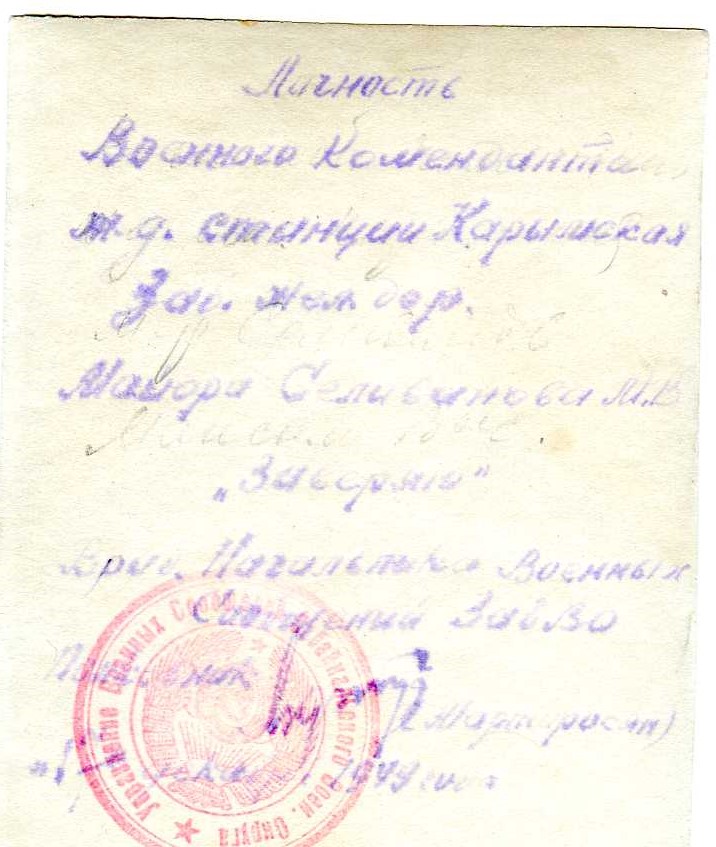 Личность
Военного Коменданта
ж.д. станции Карымская
Заб. жел дор.
Майора Селиванова М.В
„Заверяю“
Врид. Начальника Военных
Сообщений ЗабВО
(Мартиросян)
1949 года
Управление Военных Сообщений Забайкальского Воен. Округа